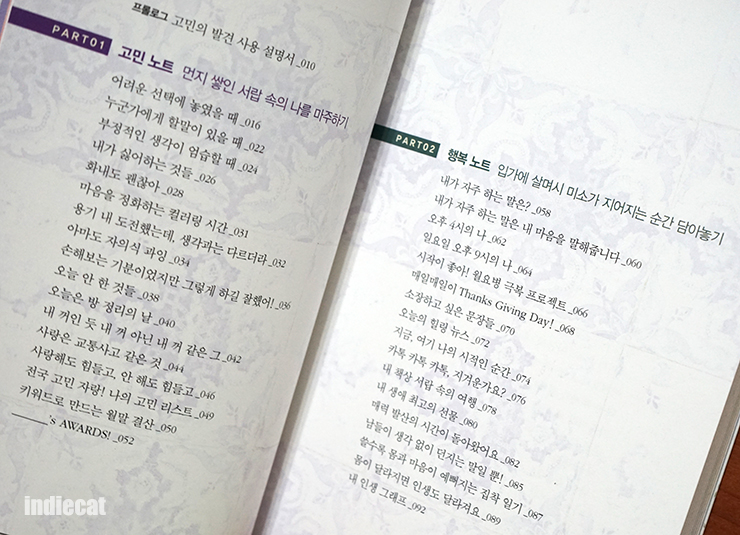 프롤로그 고민의 발견 사용 설명서 _010
PART01
고민 노트 먼지 쌓인 서랍 속의 나를 마주하기
어려운 선택에 놓였을 때 _016
누군가에게 할말이 있을 때 _022
부정적인 생각이 엄습할 때 _024
내가 싫어하는 것들 _026
화내도 괜찮아 _028
마음을 정화하는 컬러링 시간 _031
용기 내 도전했는데, 생각과는 다르더라 _032
아마도 자의식 과잉 _034
손해보는 기분이었지만 그렇게 하길 잘했어! _036
오늘 안 한 것들 _038
오늘은 방 정리의 날 _040
내 꺼인 듯 내 꺼 아닌 내 꺼 같은 그 _042
사랑은 교통사고 같은 것 _044
사랑해도 힘들고, 안 해도 힘들고 _046
전국 고민 자랑! 나의 고민 리스트 _049
키워드로 만드는 월말 결산 _050
______'s AWARDS! _052
PART02
행복 노트 입가에 살며시 미소가 지어지는 순간 담아놓기
내가 자주 하는 말은? _058
내가 자주 하는 말은 내 마음을 말해줍니다 _060
오후 4시의 나 _062
일요일 오후 9시의 나 _064
시작이 좋아! 월요병 극복 프로젝트 _066
매일매일이 Thanks Giving Day! _068
소장하고 싶은 문장들 _070
오늘의 힐링 뉴스 _072
지금, 여기 나의 시적인 순간 _074
카톡 카톡 카톡, 지겨운가요? _076
내 책상 서랍 속의 여행 _078
내 생애 최고의 선물 _080
매력 발산의 시간이 돌아왔어요 _082
남들이 생각 없이 던지는 말일 뿐! _085
쓸수록 몸과 마음이 예뻐지는 집착 일기 _087
몸이 달라지면 인생도 달라져요 _089
내 인생 그래프 _092
indiecat